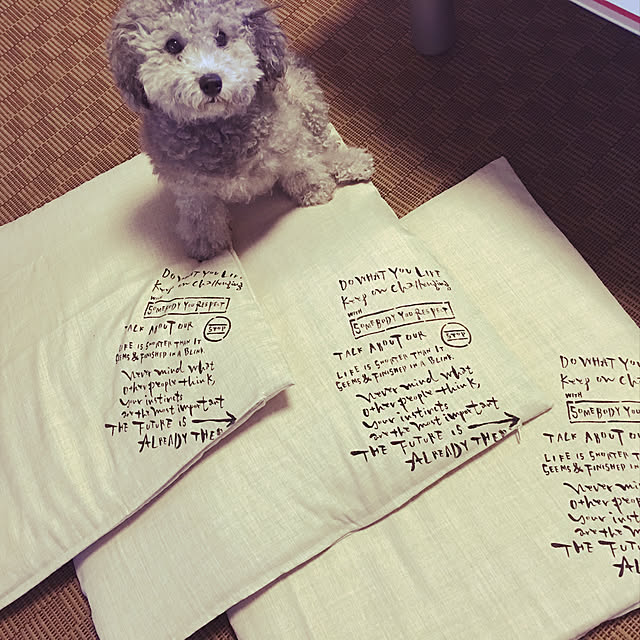 DO WHAT YOU LIKE
Keep on challenging
WITH
SOMEBODY YOU RESPECT
TALK ABOUT OUR
LIFE IS SHORTER THAN IT
SEEMS & FINISHED IN A BLINK.
Never mind what
other people think,
your instincts
are the most important
THE FUTURE IS
ALREADY THERE
DO WHAT YOU LIKE
Keep on challenging
WITH
SOMEBODY YOU RESPECT
TALK ABOUT OUR
LIFE IS SHORTER THAN IT
SEEMS & FINISHED IN A BLINK.
Never mind what
other people think,
your instincts
are the most important
THE FUTURE IS
ALREADY THERE
DO WHAT YOU
Keep on ch
WITH
SOMEBODY YOU
TALK ABOUT OU
LIFE IS SHORTER T
SEEMS & FINISHED IN
Never mi
other peop
your inst
are the mo
THE FUTU
AL